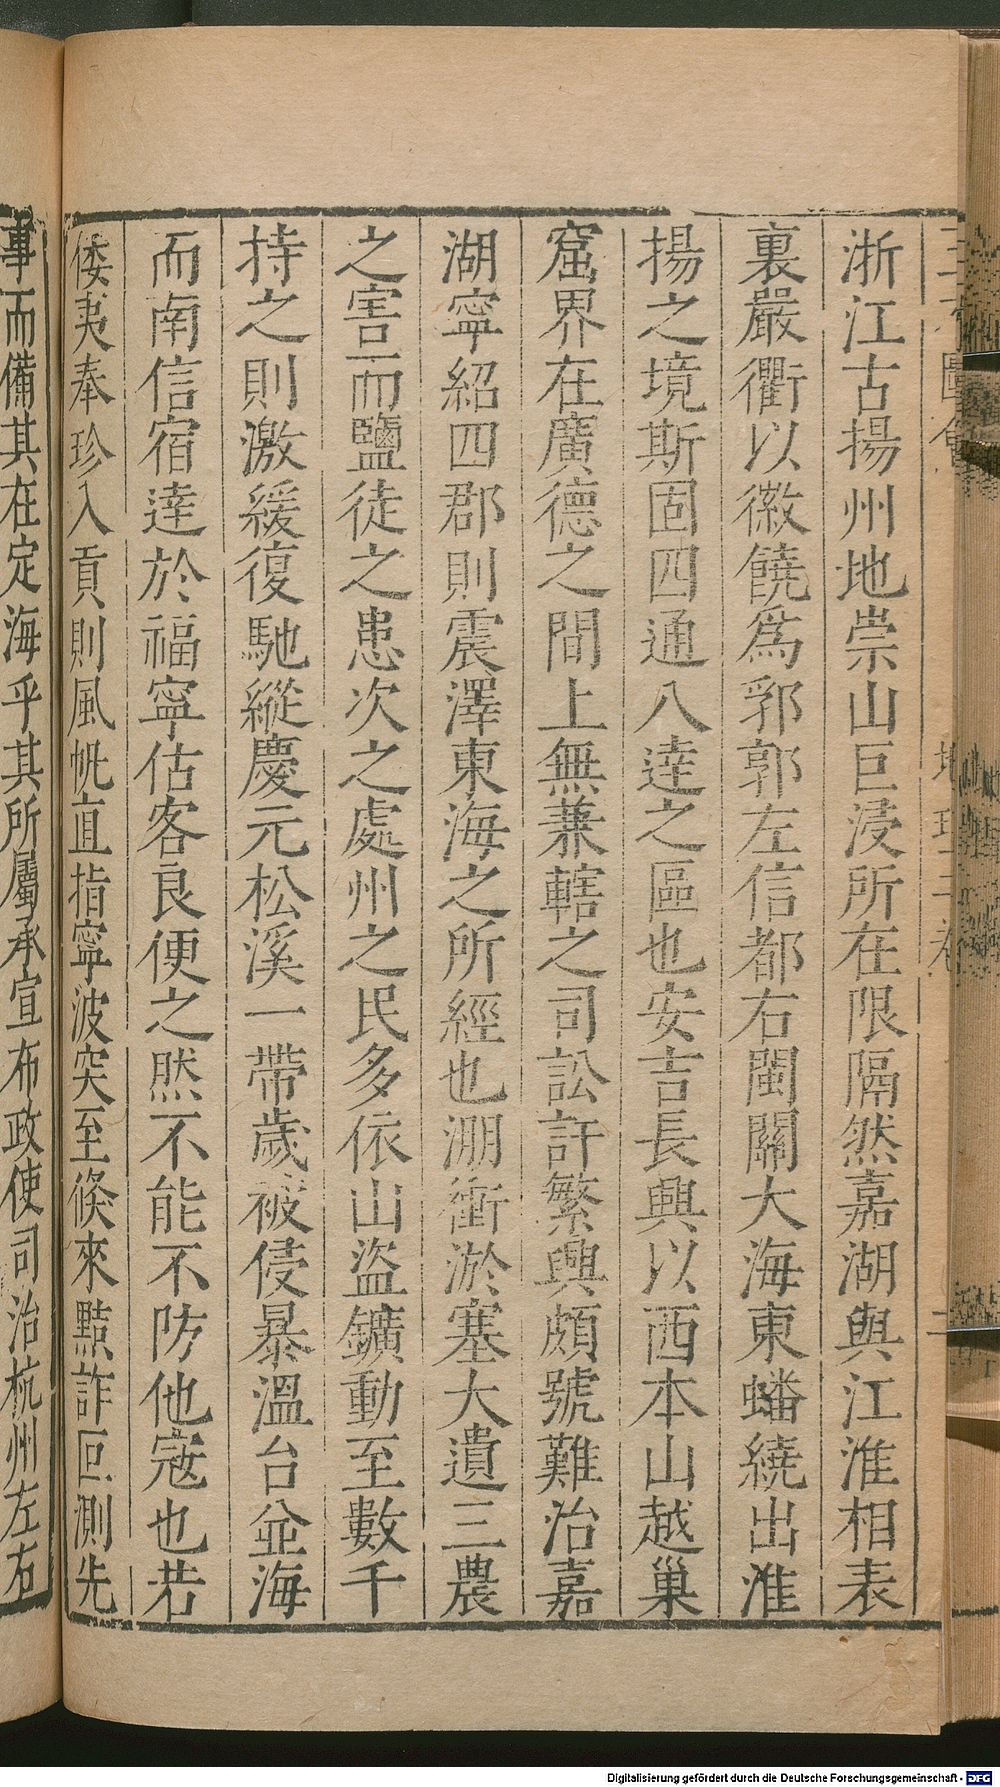 浙江古揚州地崇山巨浸所在限隔然嘉湖與江淮相表
裏嚴衢以徽饒爲郛郭左信都右閩關大海東蟠繞出淮
揚之境斯固四通八達之區也安吉長興以西本山越巢
窟界在廣德之間上無兼轄之司訟訐繁興頗號難治嘉
湖寧紹四郡則震澤東海之所經也淜衝淤塞大遺三農
之害而鹽徒之患次之處州之民多依山盜鑛動至數千
持之則激緩復馳縱慶元松溪一帶歲被侵暴溫台並海
而南信宿達於福寧估客良便之然不能不防他寇也若
倭夷奉珍入貢則風帆直指寧波突至倏來黠詐叵測先
事而備其在定海乎其所屬承宣布政使司治杭州左右
Digitalisierung gefördert durch die Deutsche Forschungsgemeinschaft - DFG